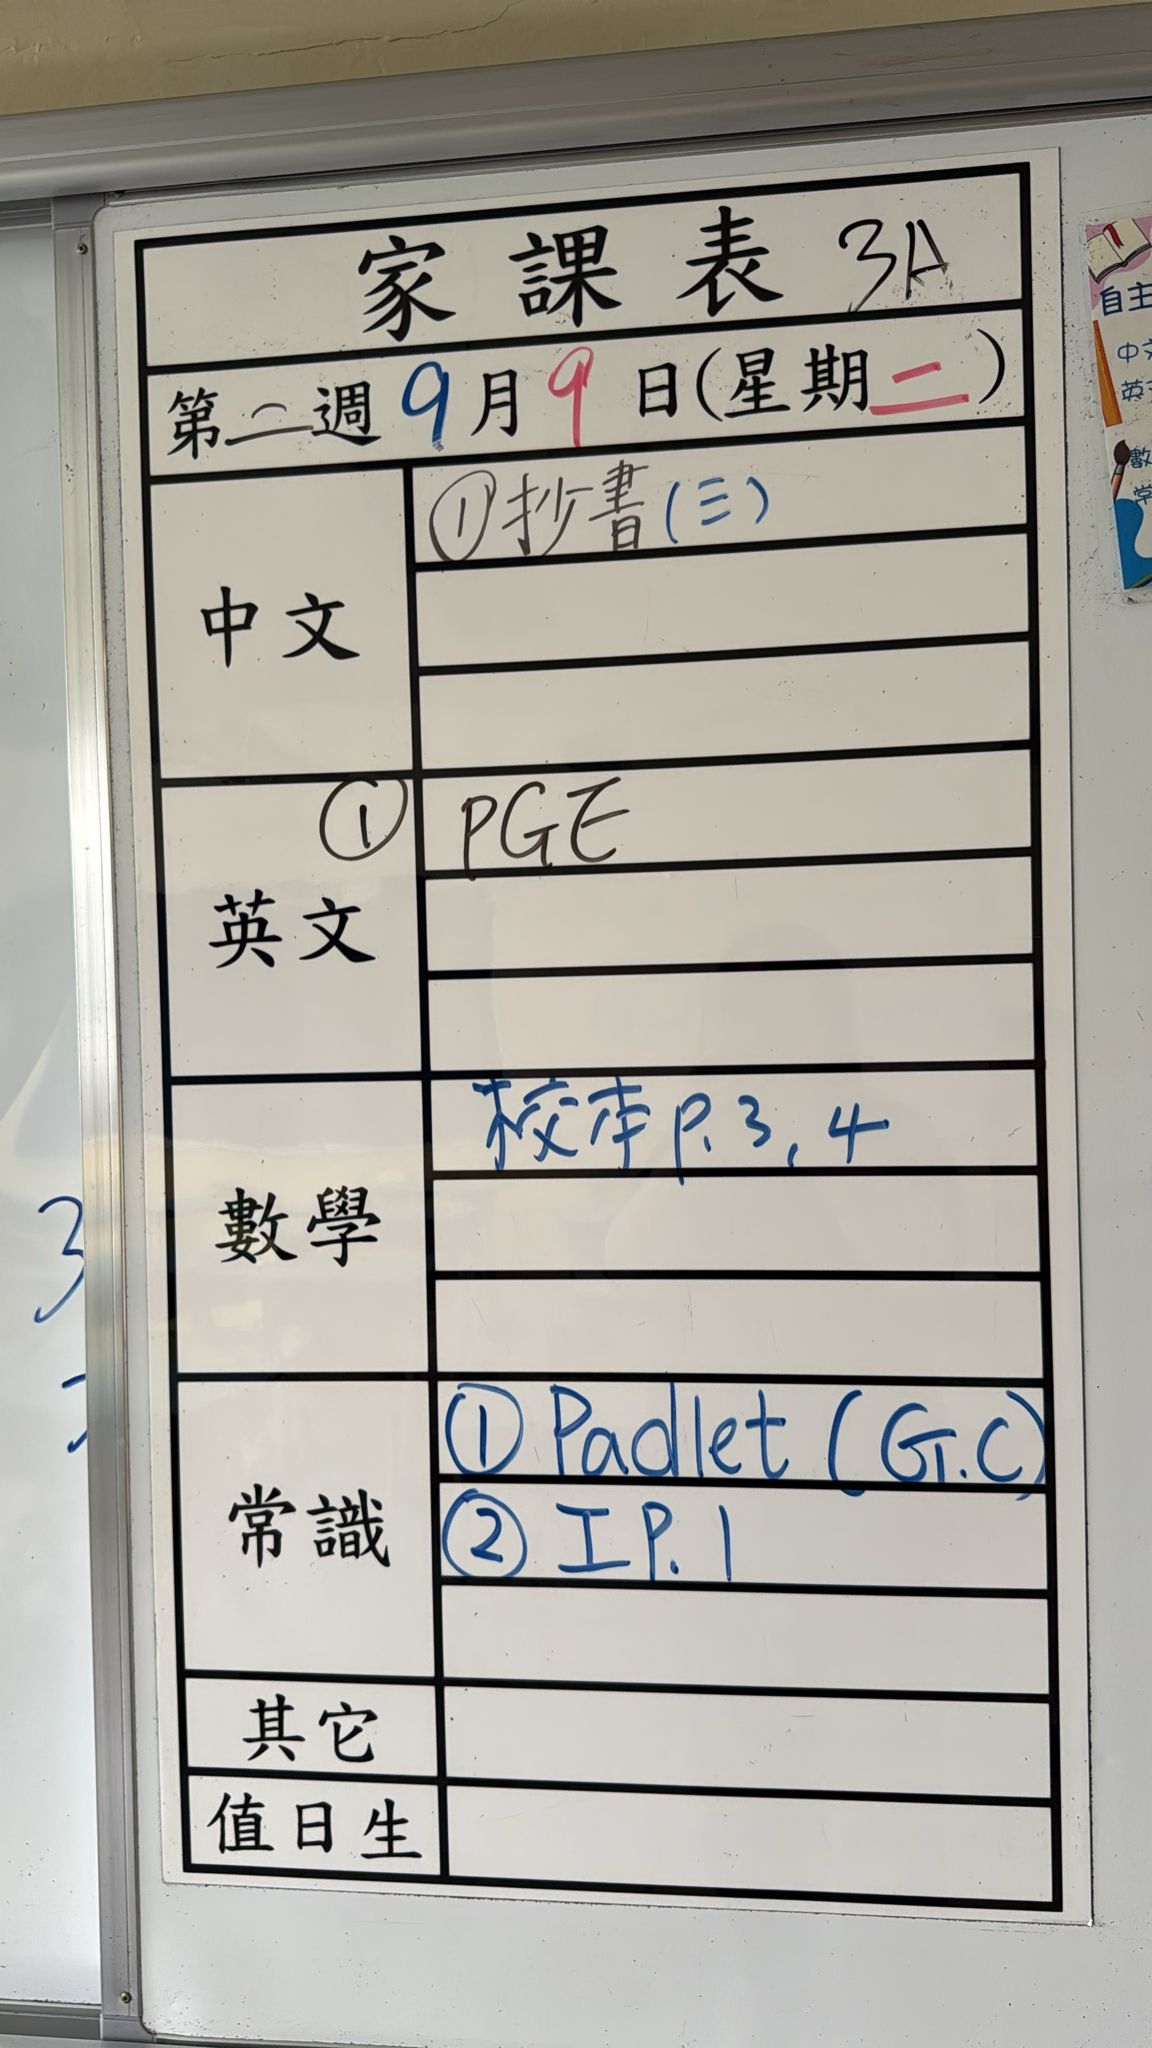 家課表 3A
第二週 9月9日(星期二)
中文
①抄書(三)
英文
① PGE
數學
校本 P.3, 4
常識
① Padlet (G.C)
② 工 P.1
其它
值日生
自主
中文
英文
數
常
3